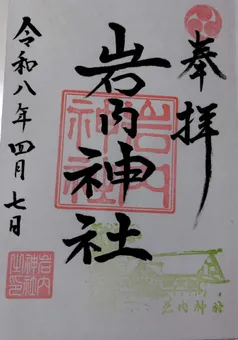 奉拝
岩内神社
令和八年四月七日
岩内神社
岩内神社